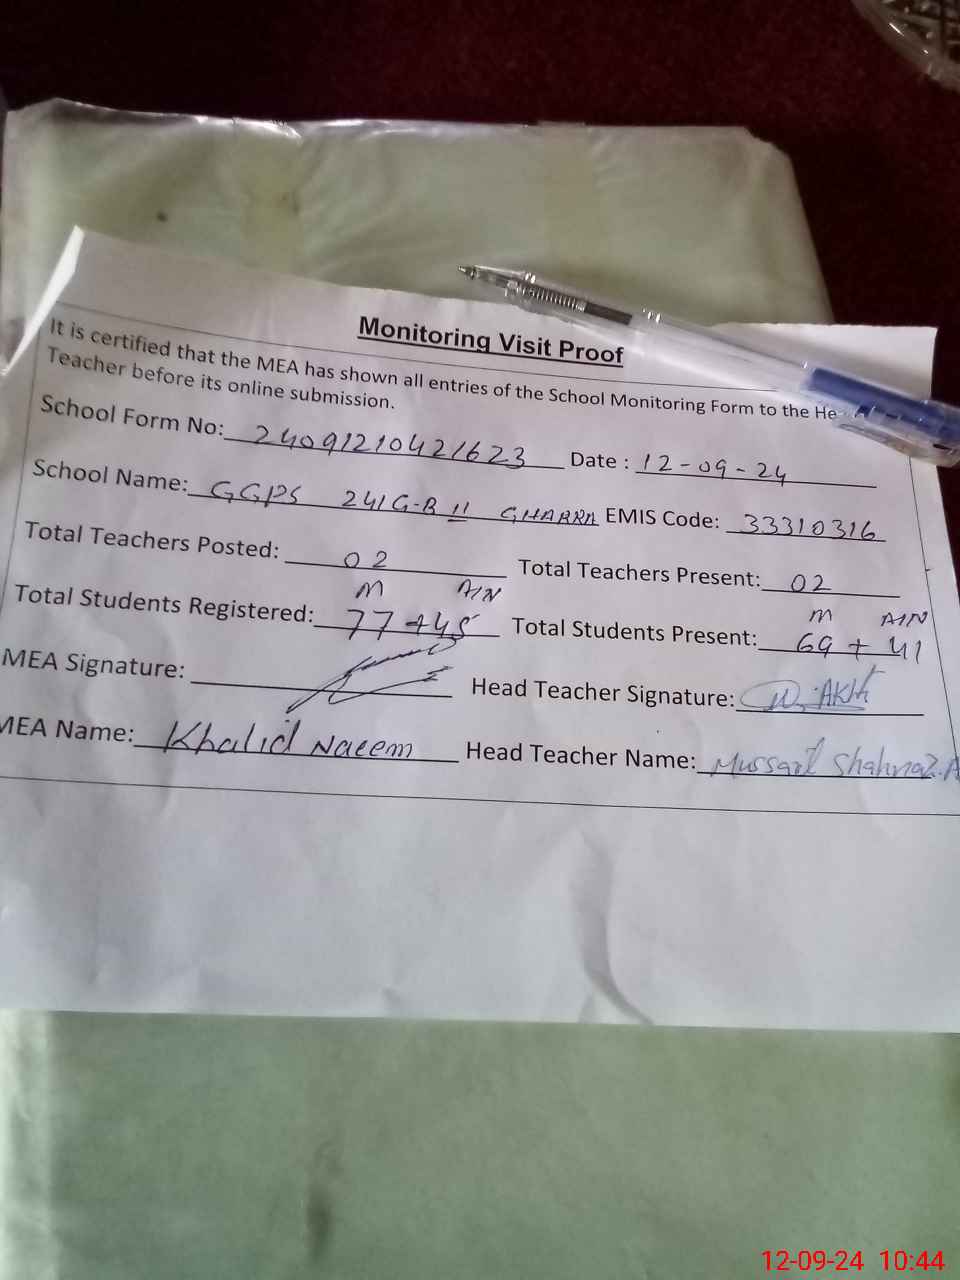 Monitoring Visit Proof
It is certified that the MEA has shown all entries of the School Monitoring Form to the He
Teacher before its online submission.
School Form No: 24091210421623 Date : 12-09-24
School Name: GGPS 241 G-B II GHARRA EMIS Code: 33310316
Total Teachers Posted: 02 Total Teachers Present: 02
M A/N M A/N
Total Students Registered: 77+45 Total Students Present: 69+41
MEA Signature: Head Teacher Signature:
MEA Name: Khalid Naeem Head Teacher Name: Mussarat Shahnaz.A
12-09-24 10:44